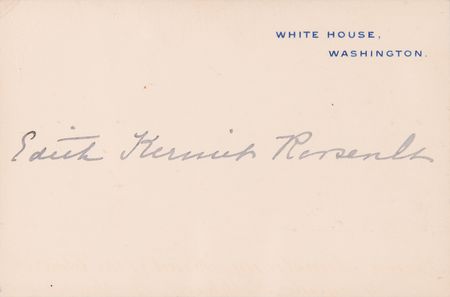 WHITE HOUSE,
WASHINGTON.
Edith Kermit Roosevelt